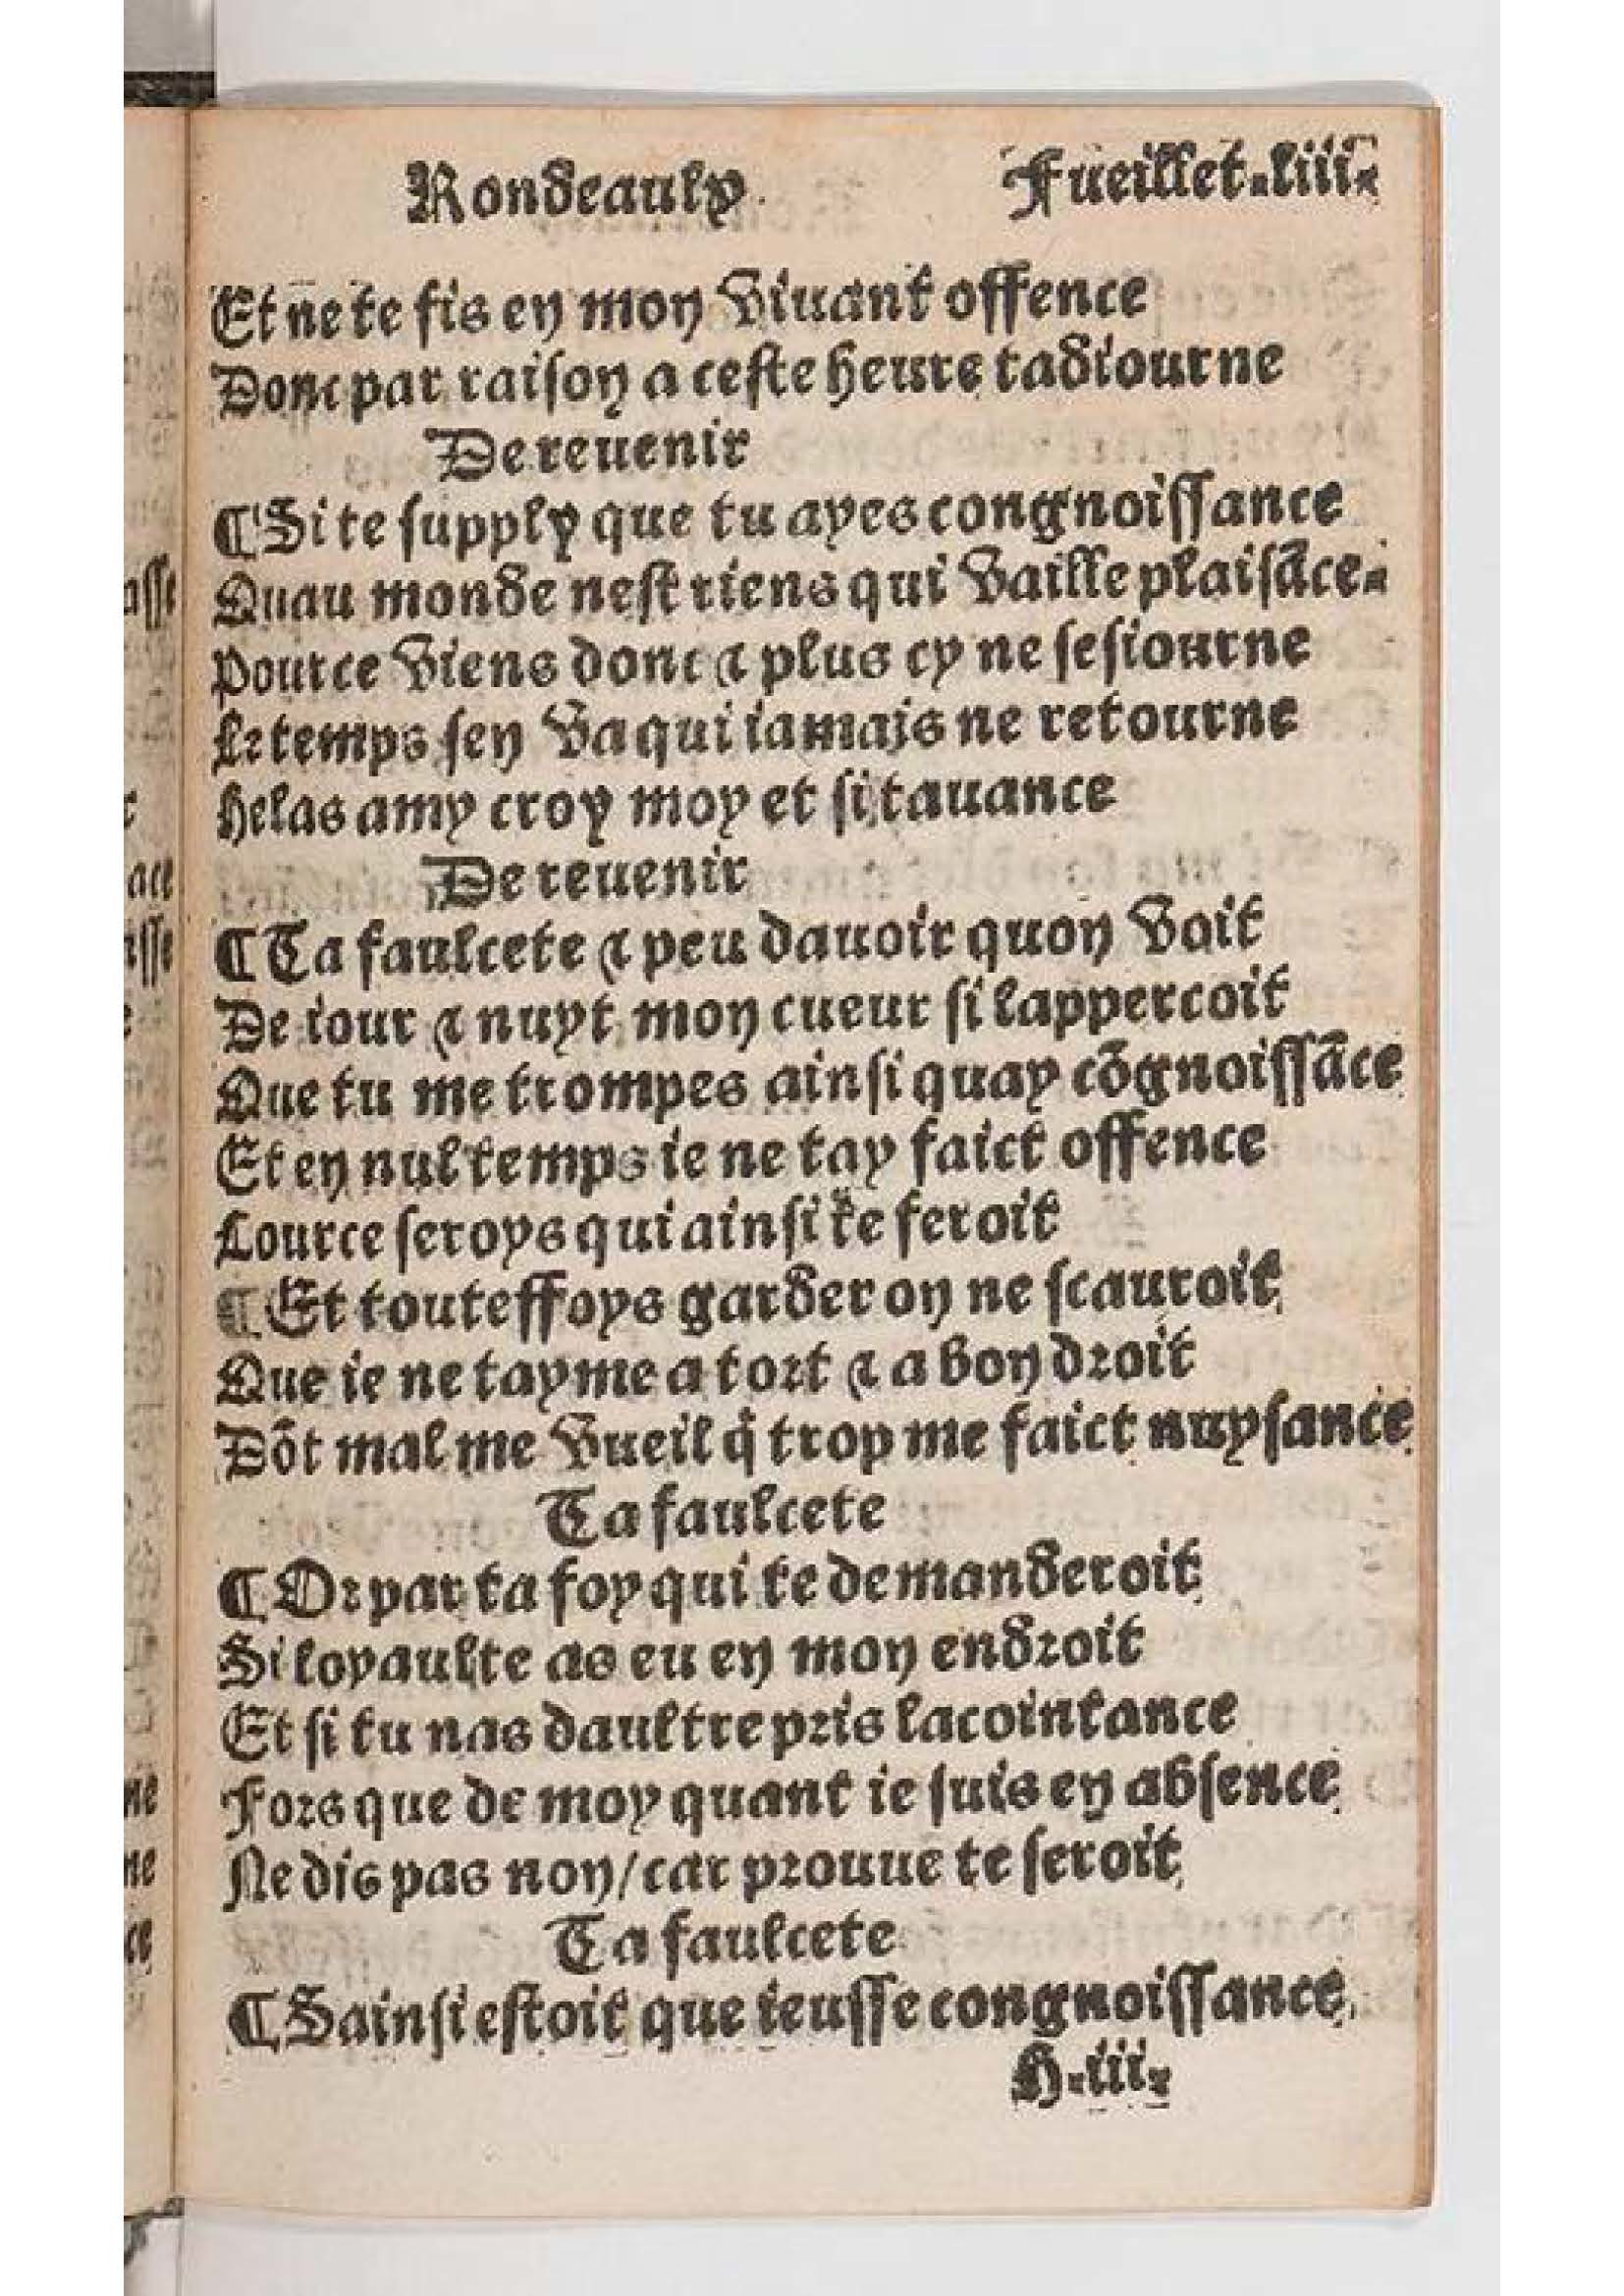 Rondeaulx. Fueillet.liii.
Et ne te fis en mon viuant offence
Donc par raison a ceste heure tadiourne
De reuenir
¶Si te supply que tu ayes congnoissance
Quau monde nest riens qui vaille plaisãce.
Pource viens donc & plus cy ne sesiourne
Le temps sen va qui iamais ne retourne
Helas amy croy moy et si tauance
De reuenir
¶Ta faulcete & peu dauoir quon voit
De iour & nuyt mon cueur si lappercoit
Que tu me trompes ainsi quay cõgnoissãce
Et en nul temps ie ne tay faict offence
Lource seroys qui ainsi te feroit
¶Et touteffoys garder on ne scauroit
Que ie ne tayme a tort & a bon droit
Dõt mal me vueil q̃ trop me faict nuysance
Ta faulcete
¶Or par ta foy qui te demanderoit
Si loyaulte as eu en mon endroit
Et si tu nas daultre pris lacointance
Fors que de moy quant ie suis en absence
Ne dis pas non/car prouue te seroit
Ta faulcete
¶Sainsi estoit que ieusse congnoissance
H.iii.